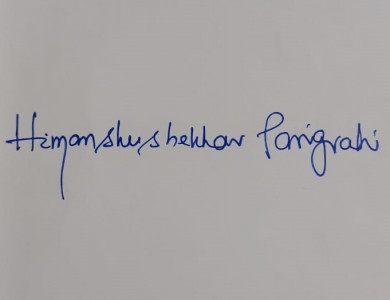 Himanshushekhar Panigrahi